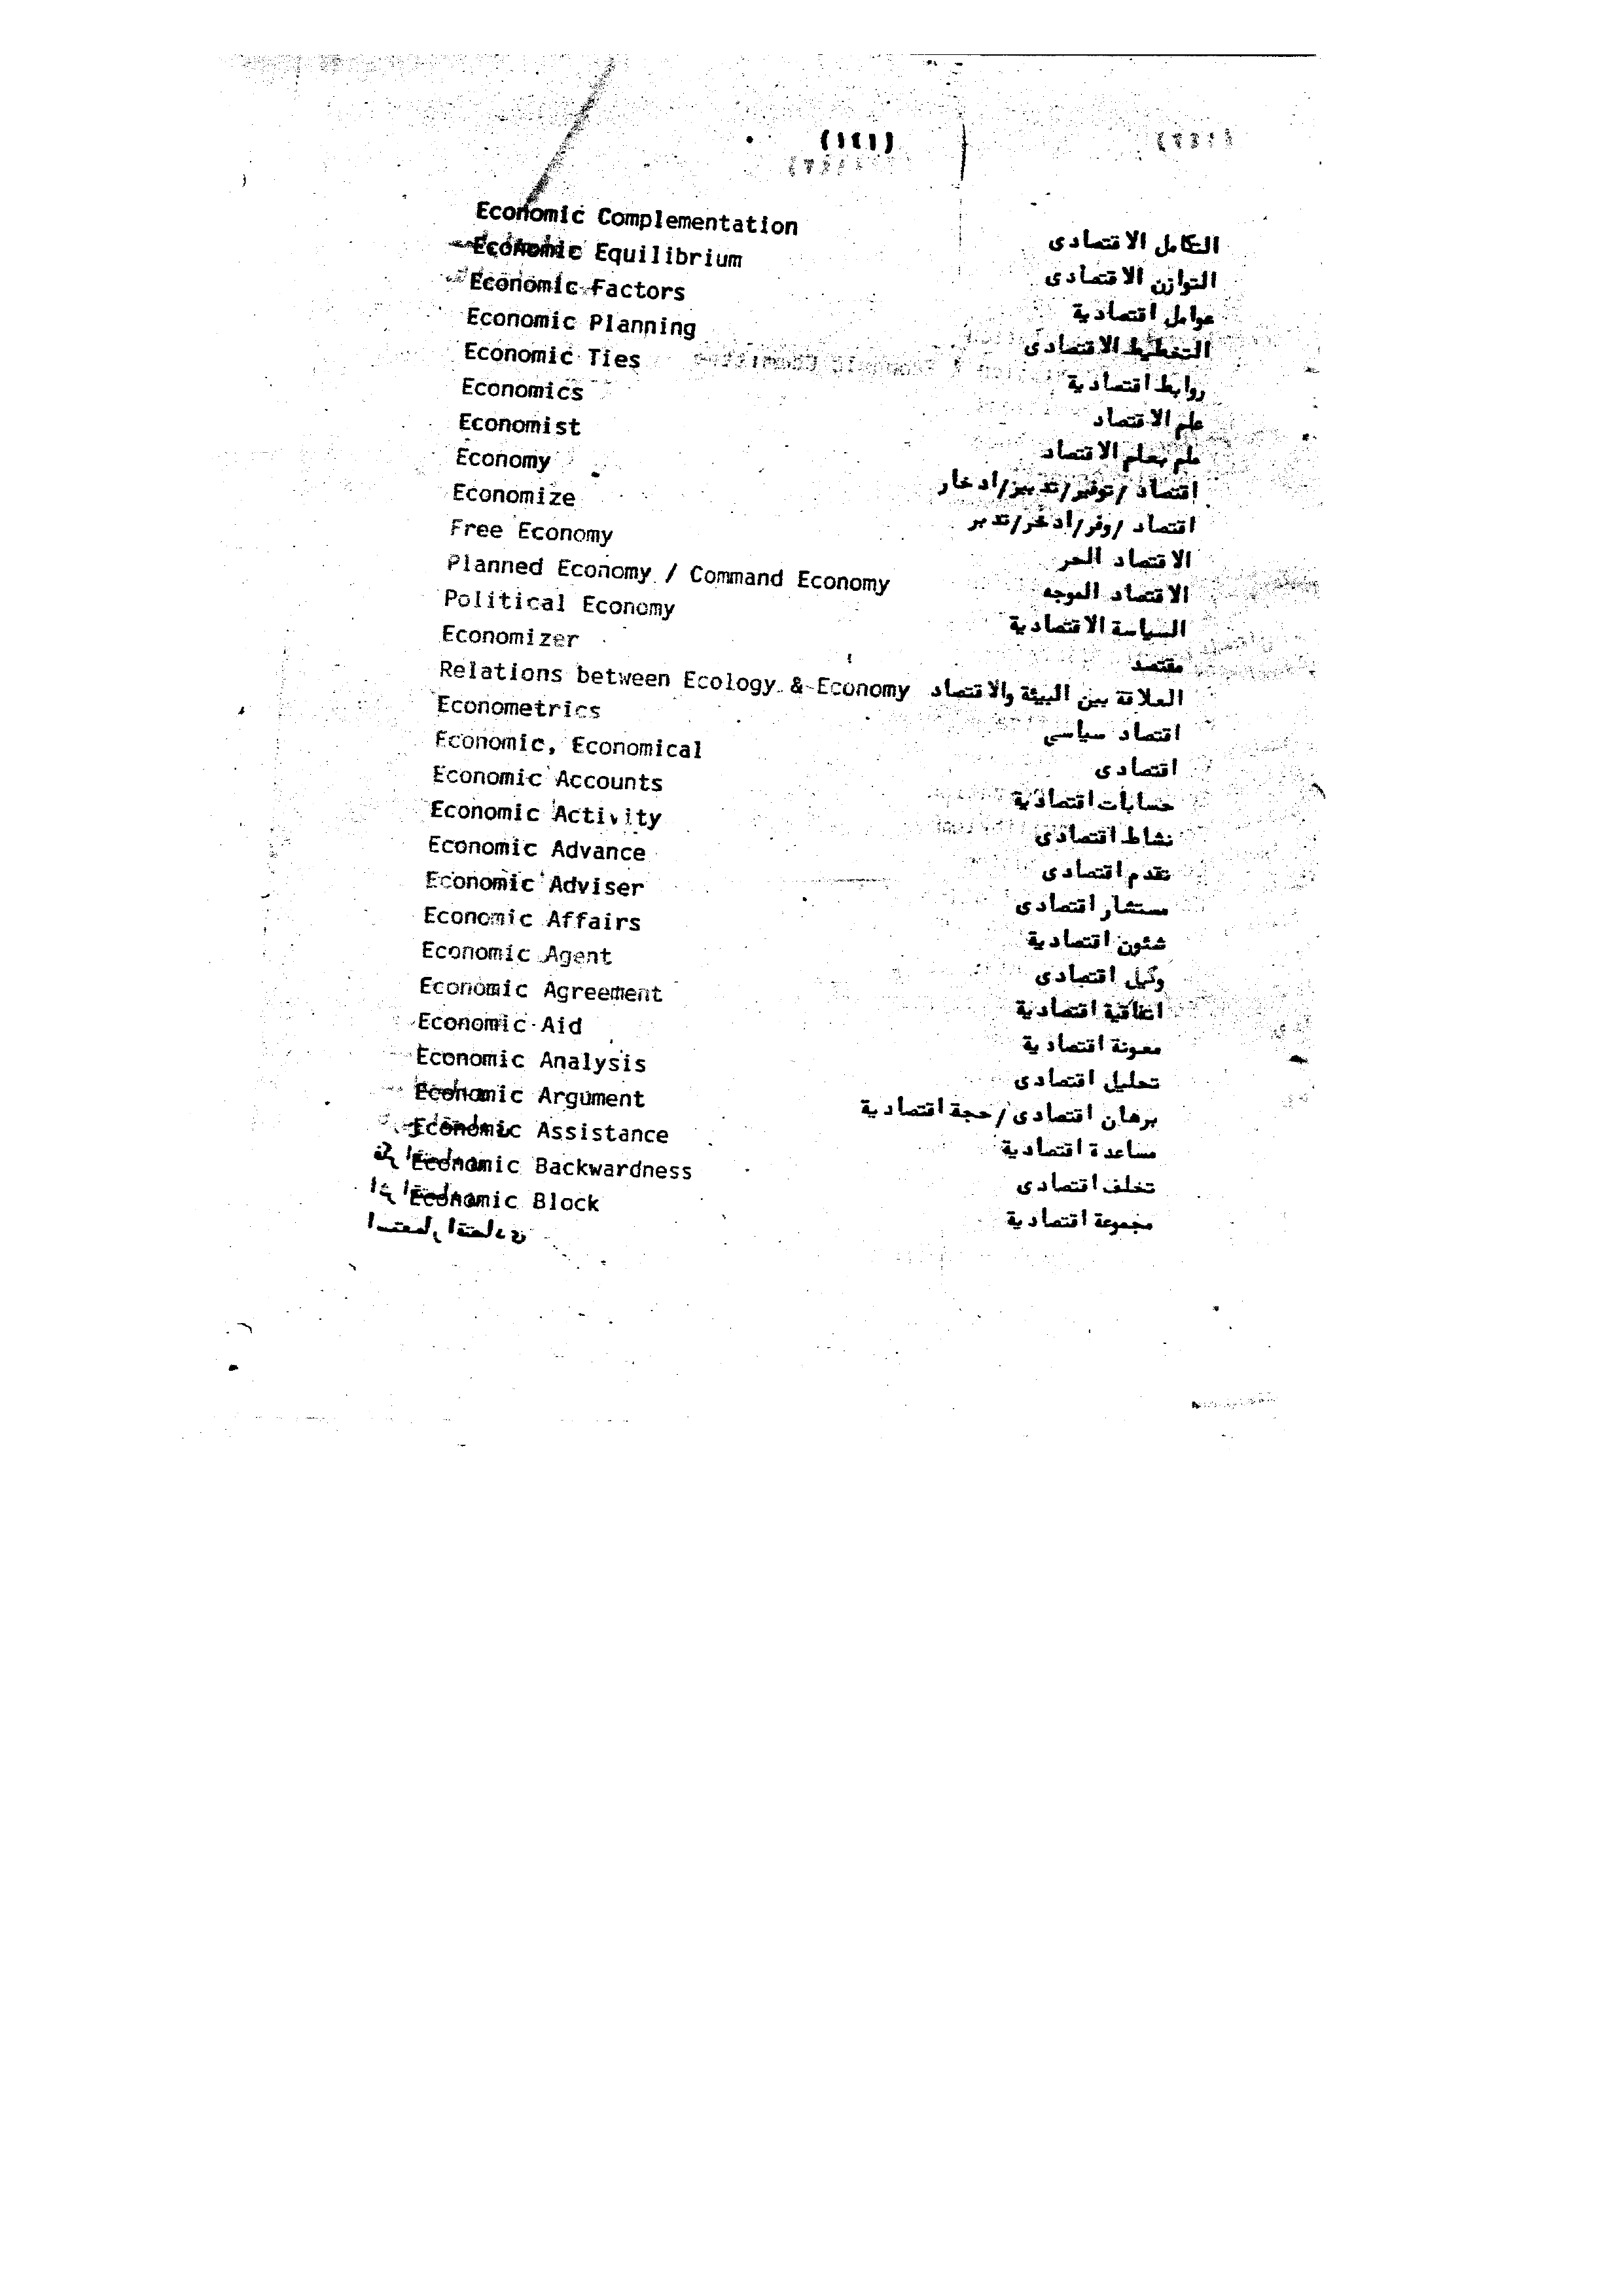 (١٤١)
Economic Complementation التكامل الاقتصادى
Economic Equilibrium التوازن الاقتصادى
Economic Factors عوامل اقتصادية
Economic Planning التخطيط الاقتصادى
Economic Ties روابط اقتصادية
Economics علم الاقتصاد
Economist ملم بعلم الاقتصاد
Economy اقتصاد /توفير/تدبير/ادخار
Economize اقتصاد /وفر/أدخر/تدبر
Free Economy الاقتصاد الحر
Planned Economy / Command Economy الاقتصاد الموجه
Political Economy السياسة الاقتصادية
Economizer مقتصد
Relations between Ecology & Economy العلاقة بين البيئة والاقتصاد
Econometrics اقتصاد سياسي
Economic, Economical اقتصادى
Economic Accounts حسابات اقتصادية
Economic Activity نشاط اقتصادى
Economic Advance تقدم اقتصادى
Economic Adviser مستشار اقتصادى
Economic Affairs شئون اقتصادية
Economic Agent وكيل اقتصادى
Economic Agreement اتفاقية اقتصادية
Economic Aid معونة اقتصادية
Economic Analysis تحليل اقتصادى
Economic Argument برهان اقتصادى/حجة اقتصادية
Economic Assistance مساعدة اقتصادية
Economic Backwardness تخلف اقتصادى
Economic Block مجموعة اقتصادية